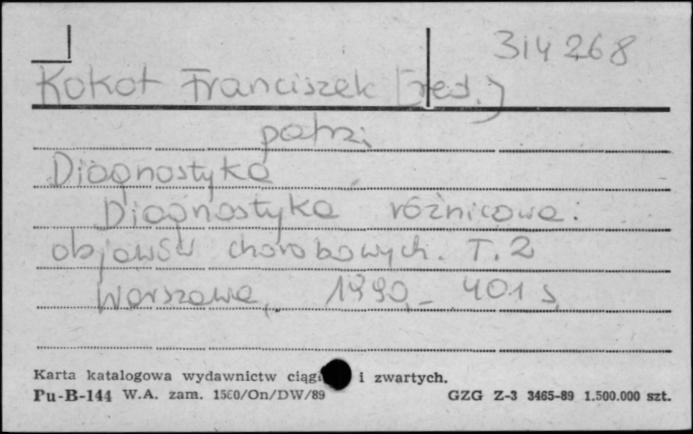 314268
Kokot Franciszek [red.]
patrz:
Diagnostyka
Diagnostyka różnicowa:
objawów chorobowych. T. 2
Warszawa, 1990 – 401 s.
Karta katalogowa wydawnictw i zwartych.
Pu-B-144 W.A. zam. 1500/On/DW/89 GZG Z-3 3465-89 1.500.000 szt.